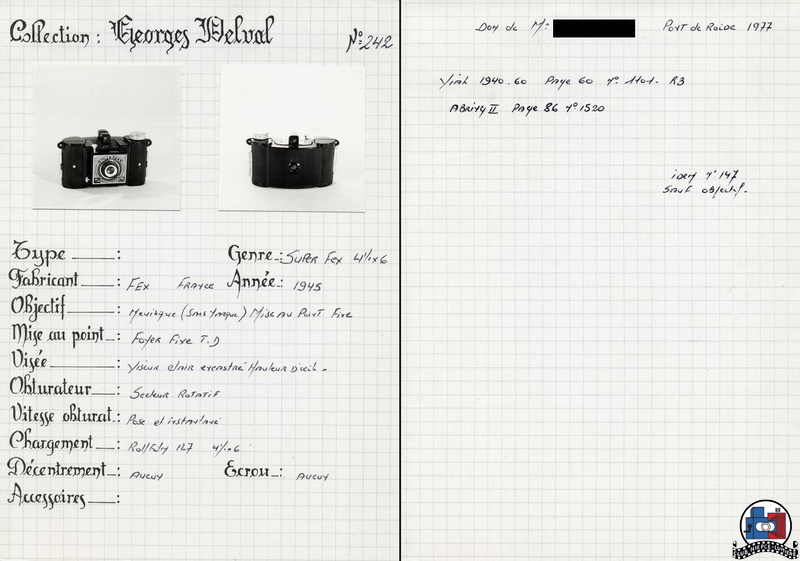 Collection : Georges Delval
N° 242
Type :
Genre : Super Fex 4½x6
Fabricant : FEX France
Année : 1945
Objectif : Menisque (sans marque) Mise au Point Fixe
Mise au point : Foyer Fixe T.D
Visée : Viseur clair encastré Hauteur D'oeil.
Obturateur : Secteur Rotatif
Vitesse obturat. : Pose et instantané
Chargement : RollFilm 127 4½x6
Décentrement : Aucun
Ecrou : Aucun
Accessoires :
Don de Mr Pont de Roide 1977
Vial 1940.60 Page 60 N° R3
Abring II Page 86 N° 1520
idem N° 147
sauf objectif.